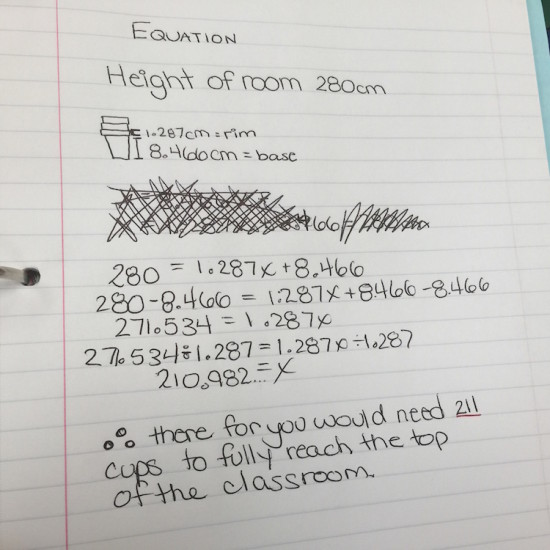 EQUATION
Height of room 280cm
1.287cm = rim
8.466cm = base
466
280 = 1.287x + 8.466
280 - 8.466 = 1.287x + 8.466 - 8.466
271.534 = 1.287x
271.534 ÷ 1.287 = 1.287x ÷ 1.287
210.982... = x
∴ there for you would need 211
cups to fully reach the top
of the classroom.